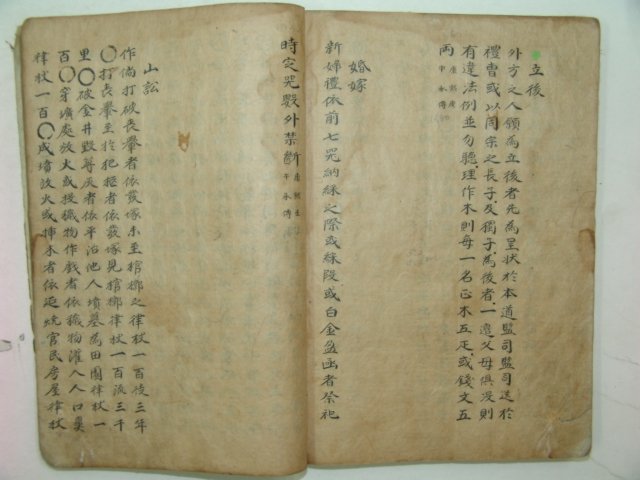 立後
外方之人願為立後者先為呈狀於本道監司監司送於
禮曹或以同宗之長子及獨子為後者一邊父母俱沒則
有違法例並勿聽理作木則每一名正木五疋或錢文五
兩
婚嫁
新婦禮依前七器納綵之際或綵段或白金盆函者祭祀
時定器數外禁斷
山訟
作倘打破喪轝者依發塚未至棺槨之律杖一百徒三年
〇打喪轝至於犯柩者依發塚見棺槨律杖一百流三千
里〇破金井毀尊灰者依平治他人墳墓為田園律杖一
百〇穿壙處放火或投穢物作戲者依穢物灌入人口鼻
律杖一百〇成墳放火或揷木者依延燒官民房屋律杖